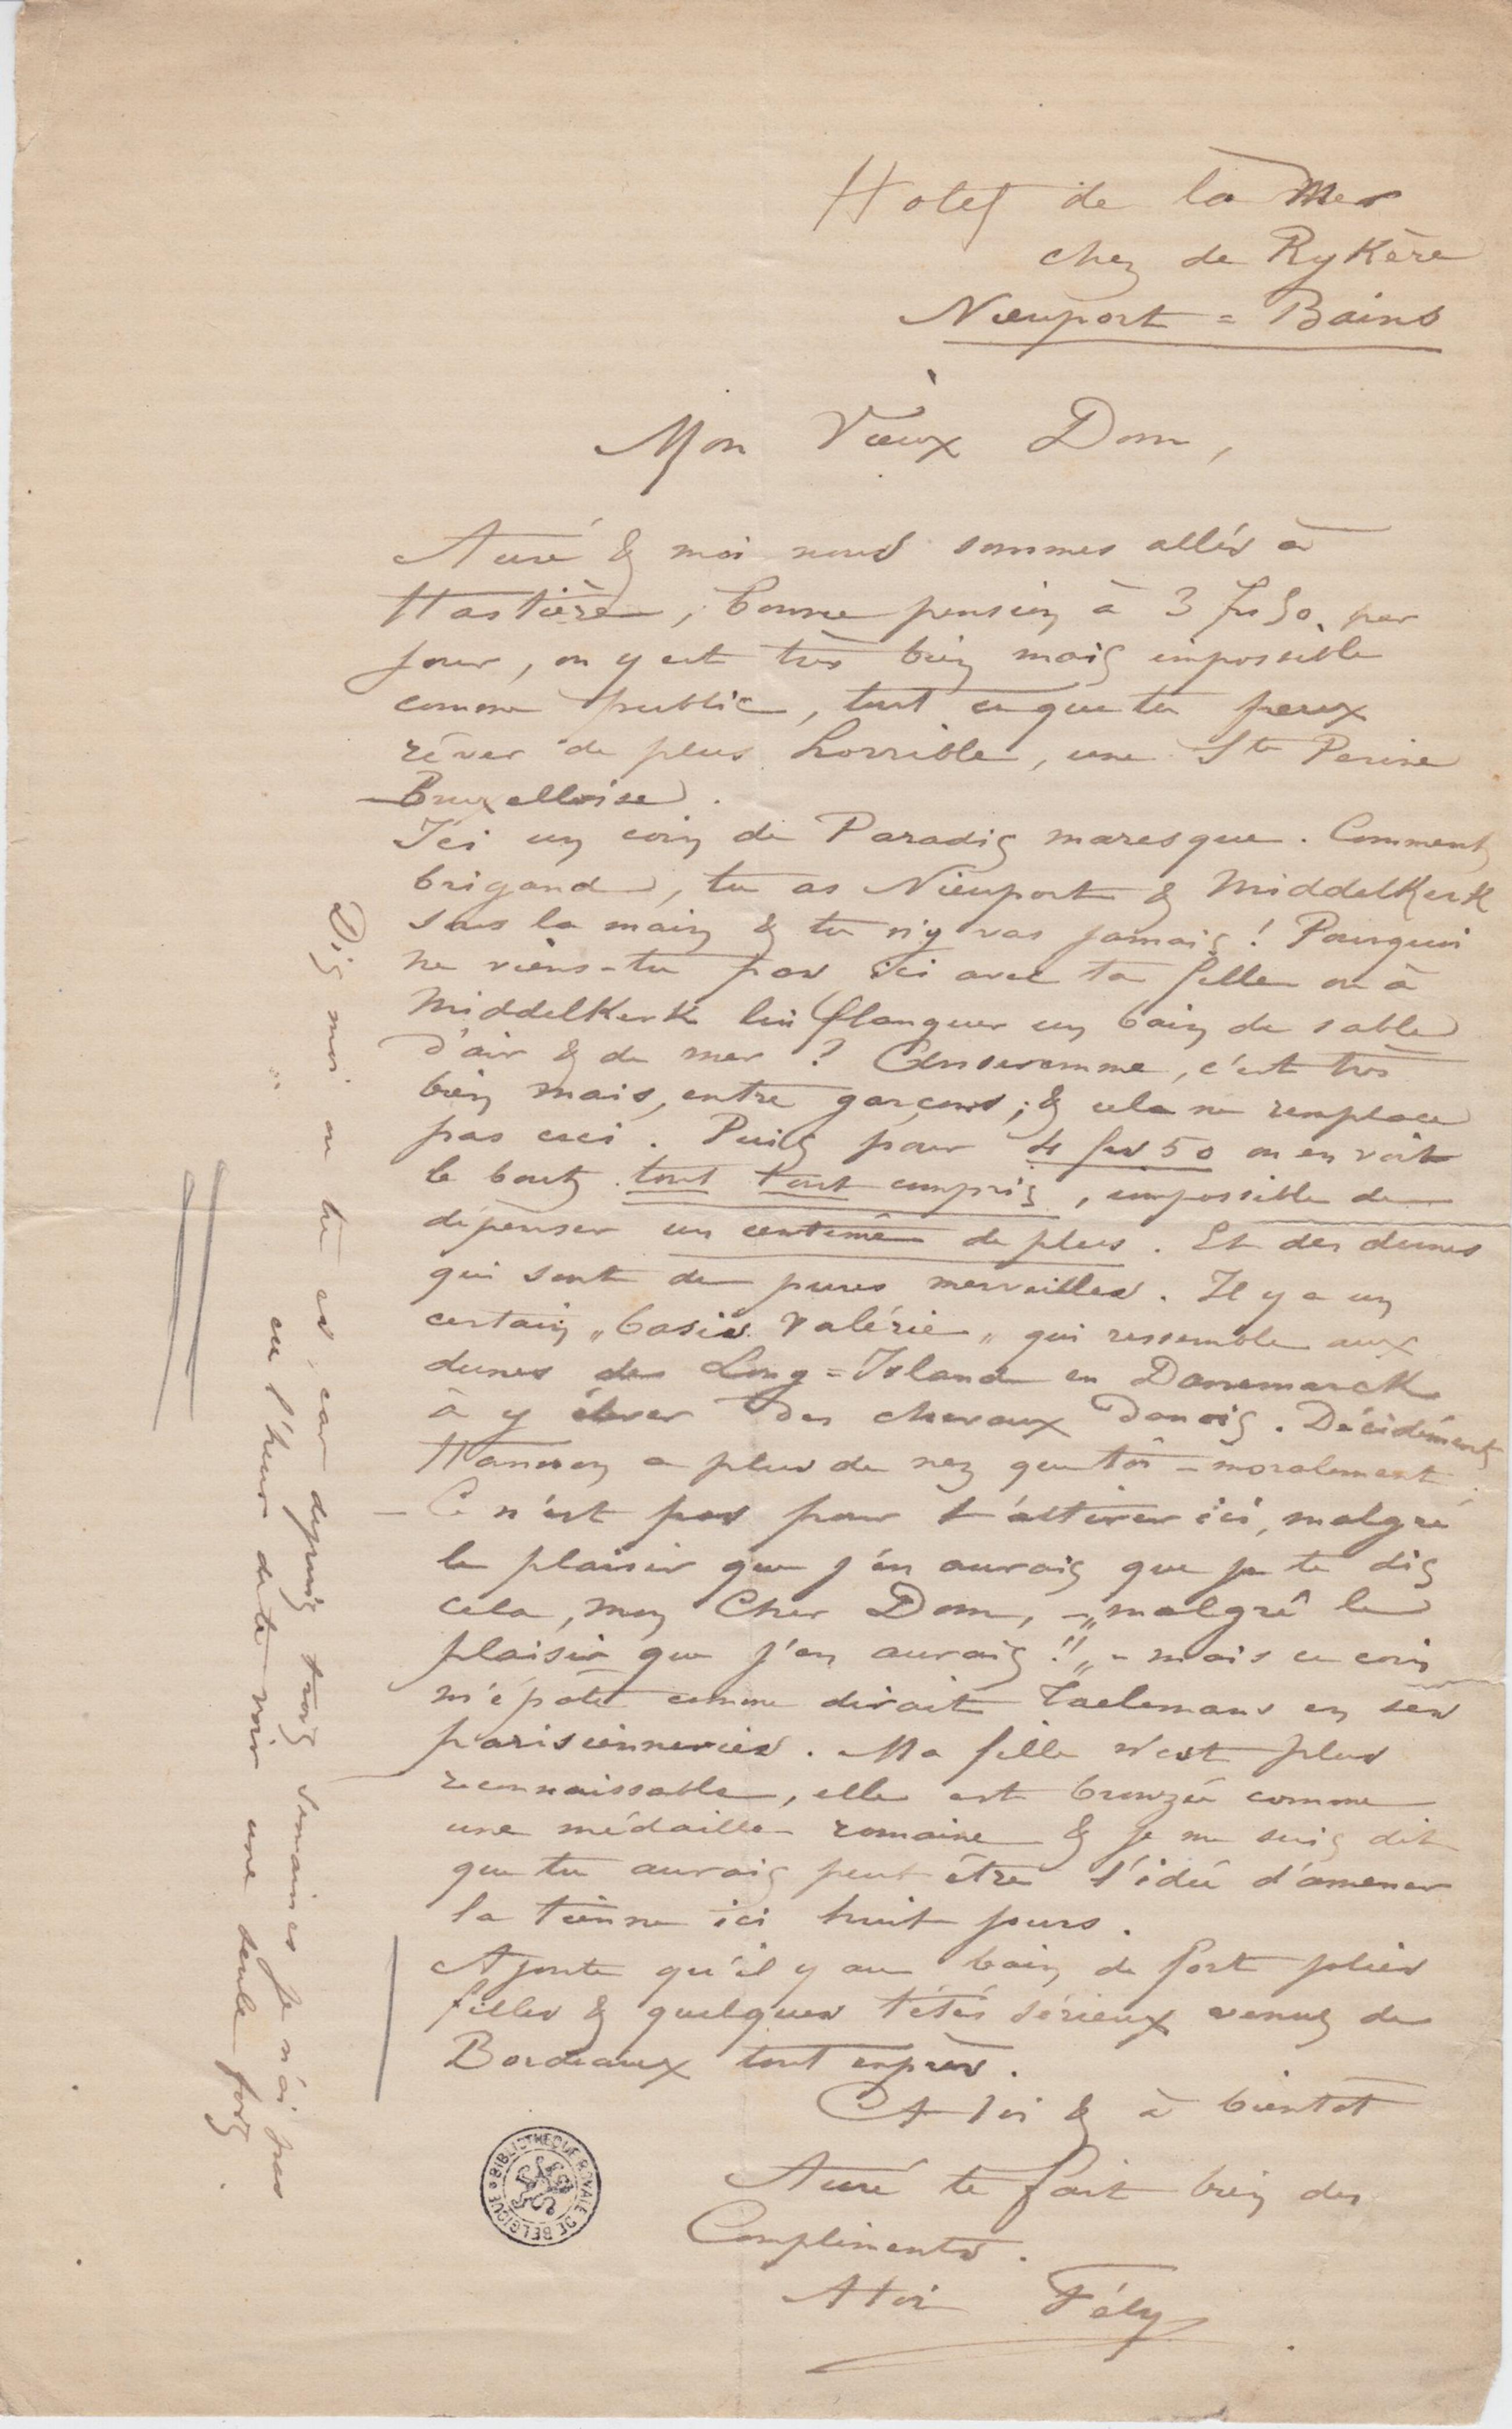 Hotel de la Mer
chez de Rykère
Nieuport = Bains
Mon Vieux Dom,
Auré & moi nous sommes allés à
Hastière, bonne pension à 3 frs 50. par
jour, on y est très bien mais impossible
comme public, tout ce que tu peux
rêver de plus horrible, une Ste Perine
Bruxelloise.
Ici un coin de Paradis maresque. Comment
brigand, tu as Nieuport & Middelkerk
sous la main & tu n'y vas jamais ! Pourquoi
ne viens-tu pas ici avec ta fille ou à
Middelkerk lui flanquer un bain de sable
d'air & de mer ? Anseremme, c'est très
bien mais, entre garçons, & cela ne remplace
pas ceci. Puis pour 4 frs 50 on en voit
le bout, tout tout compris, impossible de
dépenser un centime de plus. Et des dunes
qui sont de pures merveilles. Il y a un
certain „ Valérie „ qui ressemble aux
dunes de Long = Island en Danemarck
à y élever des chevaux Danois. Décidément
Hannon a plus de nez que toi – moralement.
– Ce n'est pas pour t'attirer ici, malgré
le plaisir que j'en aurais que je te dis
cela, mon Cher Dom, – „malgré le
plaisir que j'en aurais !!„ – mais ce coin
m'épate comme dirait Taelemans en ses
parisienneries. Ma fille n'est plus
reconnaissable, elle est bronzée comme
une médaille romaine & je me suis dit
que tu aurais peut être l'idée d'amener
la tienne ici huit jours.
Ajoute qu'il y a au bain de fort jolies
filles & quelques tétés sérieux venus de
Bordeaux tout exprès.
A toi & à bientôt
Auré te fait bien des
Compliments.
A toi Fély
Dis moi où tu es, car depuis trois semaines je n'ai pas
eu l'heur de te voir une seule fois.
BIBLIOTHEQUE ROYALE DE BELGIQUE